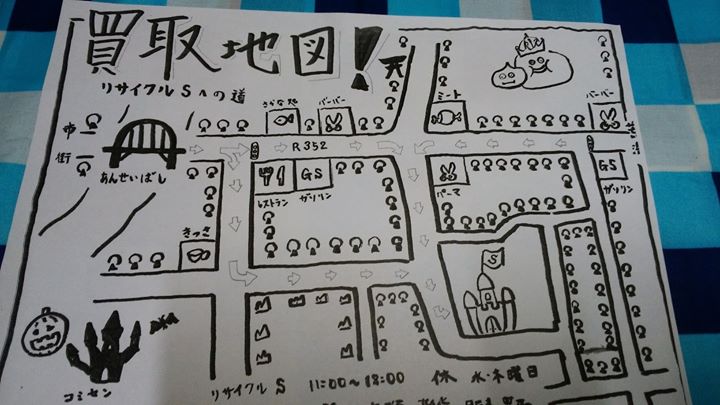 買取地図!
リサイクルSへの道
さかな処
バーバー
ミート
バーバー
市
街
あんせいばし
R352
GS
レストラン
ガソリン
パーマ
GS
ガソリン
きっさ
S
コミセン
リサイクルS 11:00~18:00 休 水・木曜日